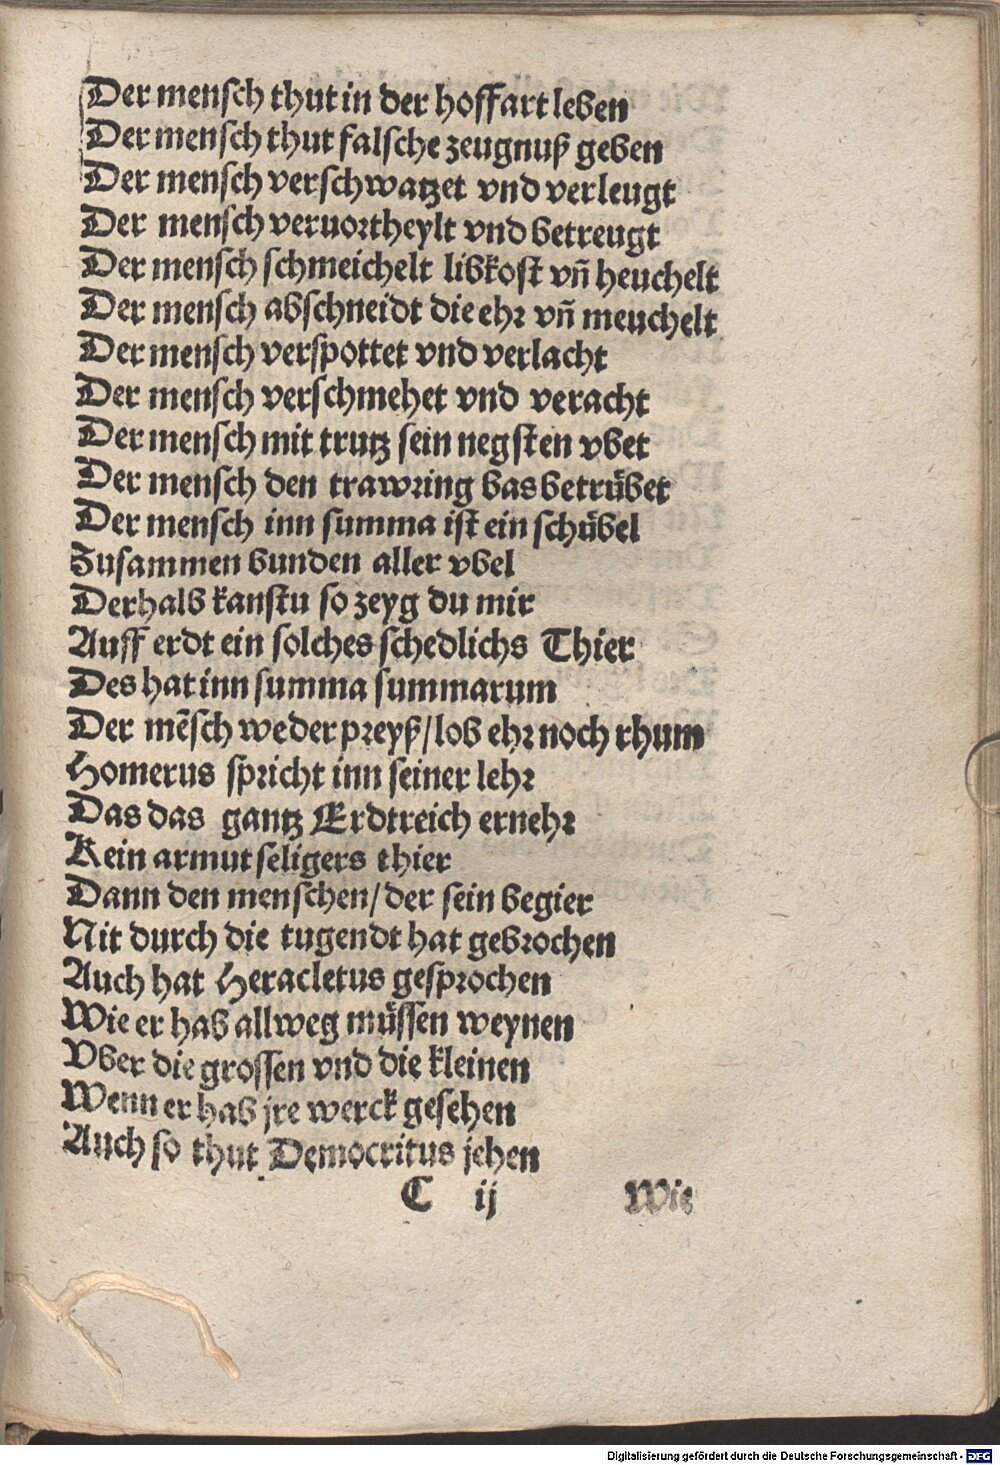 Der mensch thut in der hoffart leben
Der mensch thut falsche zeugnuß geben
Der mensch verschwatzet vnd verleugt
Der mensch veruortheylt vnd betreugt
Der mensch schmeichelt libkost vñ heuchelt
Der mensch abschneidt die ehr vñ meuchelt
Der mensch verspottet vnd verlacht
Der mensch verschmehet vnd veracht
Der mensch mit trutz sein negsten vbet
Der mensch den trawring bas betrübet
Der mensch inn summa ist ein schübel
Zusammen bunden aller vbel
Derhalb kanstu so zeyg du mir
Auff erdt ein solches schedlichs Thier
Des hat inn summa summarum
Der mẽsch weder preyß/lob ehr noch rhum
Homerus spricht inn seiner lehr
Das das gantz Erdtreich ernehr
Kein armutseligers thier
Dann den menschen/der sein begier
Nit durch die tugendt hat gebrochen
Auch hat Heracletus gesprochen
Wie er hab allweg müssen weynen
Vber die grossen vnd die kleinen
Wenn er hab jre werck gesehen
Auch so thut Democritus jehen
C ij Wie
Digitalisierung gefördert durch die Deutsche Forschungsgemeinschaft - DFG